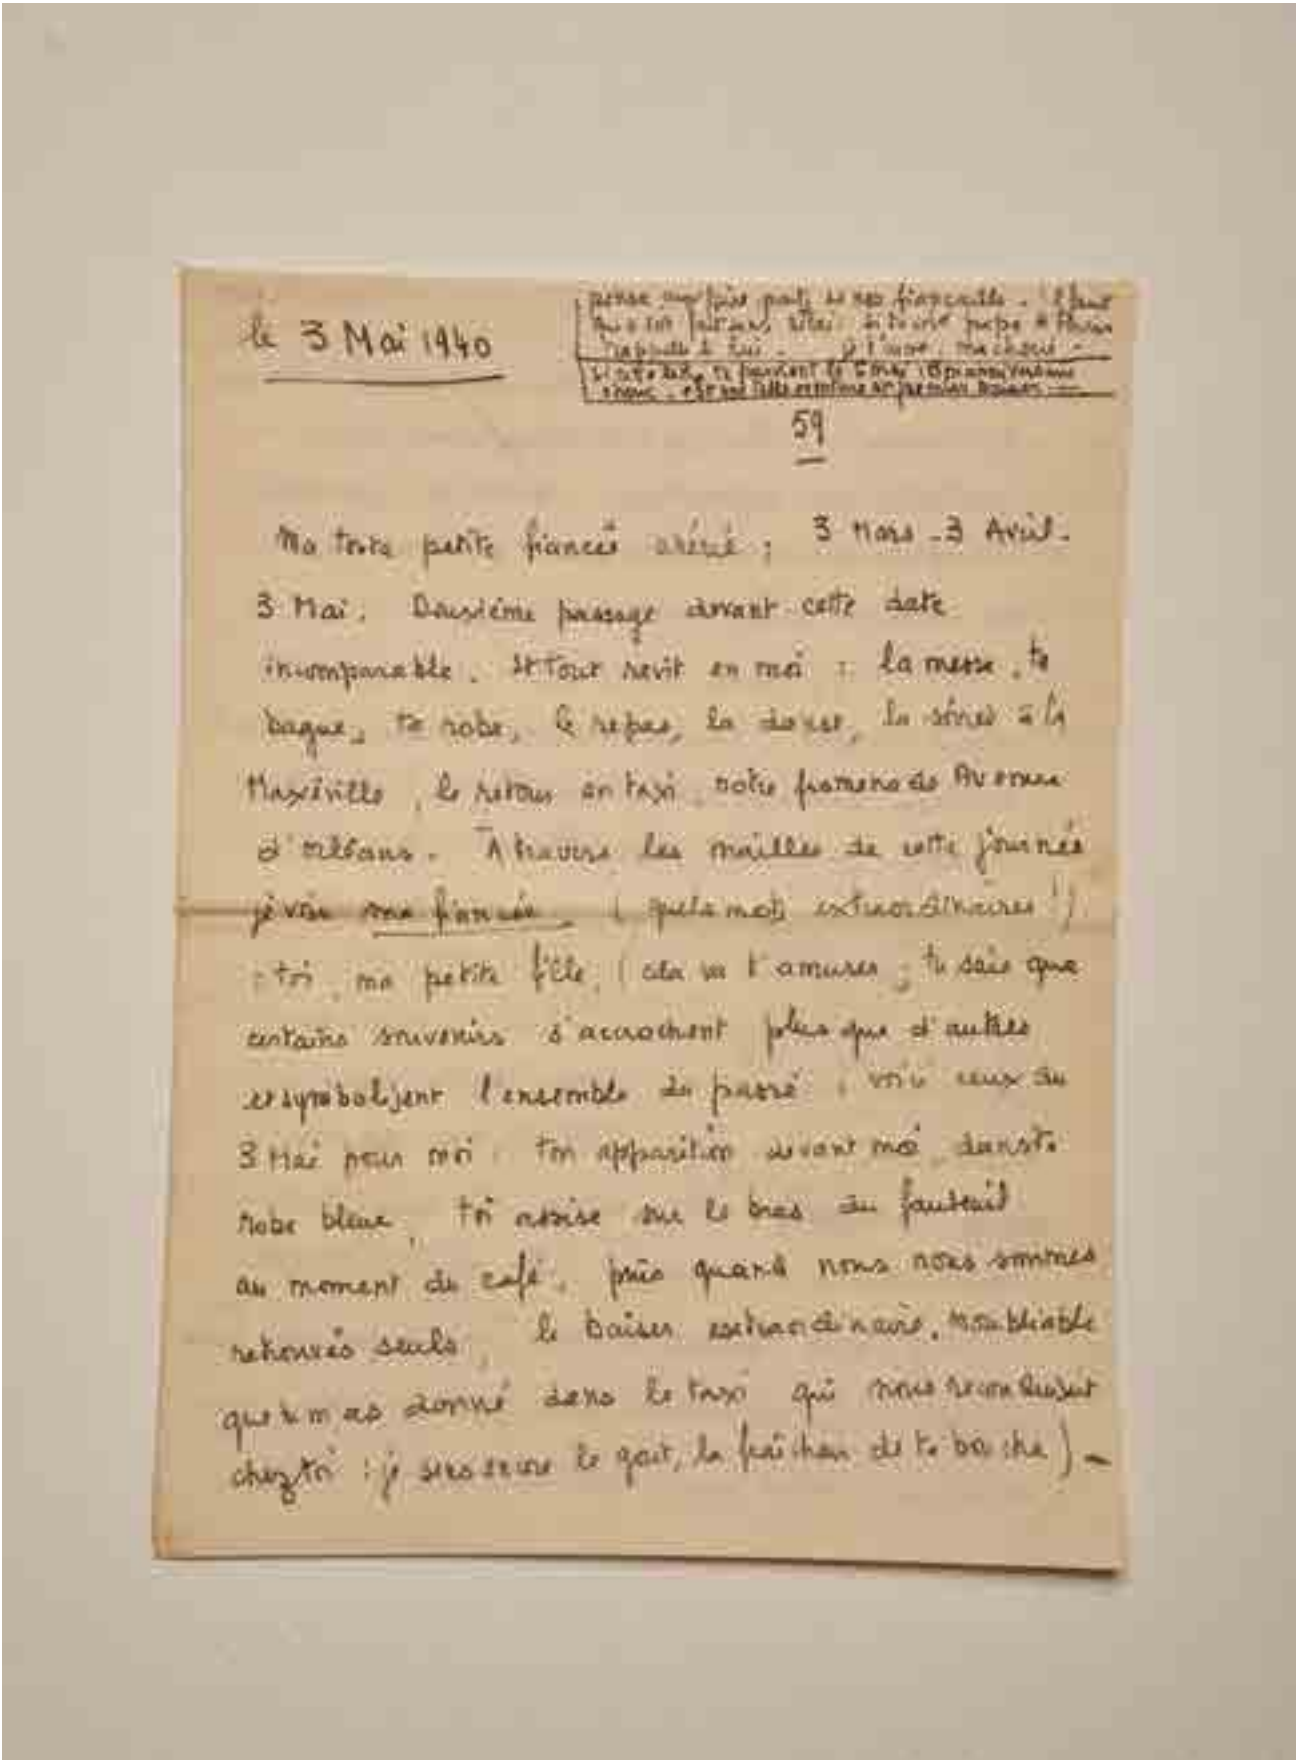 le 3 Mai 1940
pense aux faire part de nos fiançailles. Il faut
rappelle à lui. je t'aime, ma chérie -
59
Ma toute petite fiancée chérie ; 3 Mars - 3 Avril -
3 Mai. Deuxième passage devant cette date
incomparable. Et tout revit en moi : la messe, ta
bague, ta robe, le repas, la danse, la soirée à la
Maxéville, le retour en taxi, notre promenade Avenue
d'orléans. A travers les mailles de cette journée
je vois ma fiancée (quels mots extraordinaires !)
: toi, ma petite fille, (cela va t'amuser, tu sais que
certains souvenirs s'accrochent plus que d'autres
et symbolisent l'ensemble du passé : voici ceux du
3 Mai pour moi : ton apparition devant moi, dans ta
robe bleue, toi assise sur le bras du fauteuil
au moment du café, puis quand nous nous sommes
retrouvés seuls, le baiser extraordinaire, inoubliable
que tu m'as donné dans le taxi qui nous reconduisait
chez toi : je sens encore le goût, la fraîcheur de ta bouche) -